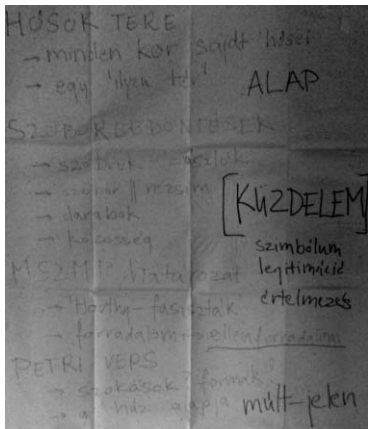 HŐSÖK TERE
→ minden kor saját hősei
→ egy 'ilyen tér'
ALAP
SZOBORLEDÖNTÉSEK
→ szobrok
→ szobor || rezsim
→ darabok
→ közösség
[KÜZDELEM]
szimbólum
legitimáció
értelmezés
MSZMP határozat
→ 'Horthy-fasiszták'
→ forradalom → ellenforradalom
PETRI VERS
→ szokások? formák?
→ a ház alapja
múlt-jelen